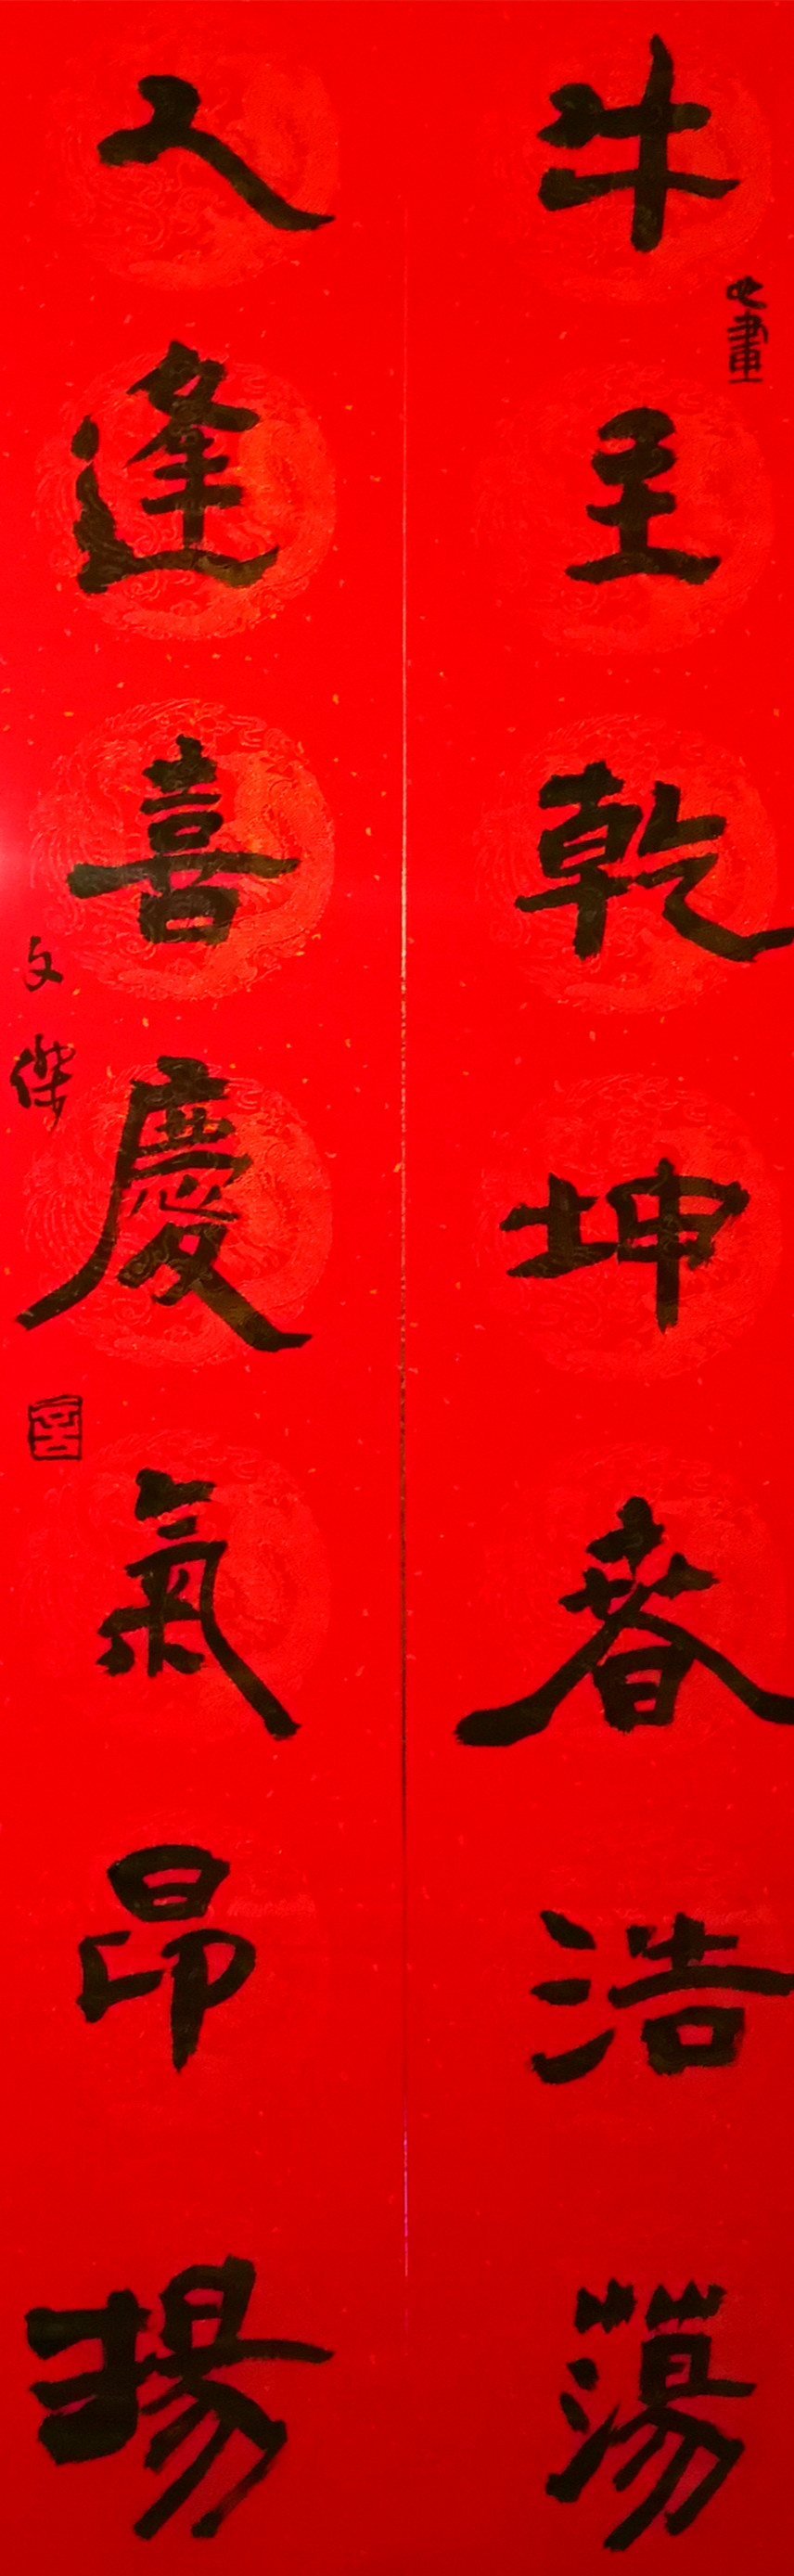 牛主乾坤春浩蕩
人逢喜慶氣昂揚
文傑